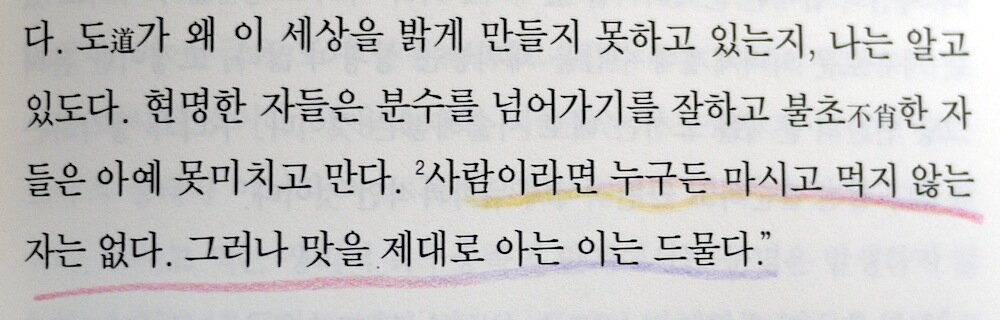 다. 도道가 왜 이 세상을 밝게 만들지 못하고 있는지, 나는 알고
있도다. 현명한 자들은 분수를 넘어가기를 잘하고 불초不肖한 자
들은 아예 못미치고 만다. ²사람이라면 누구든 마시고 먹지 않는
자는 없다. 그러나 맛을 제대로 아는 이는 드물다.”